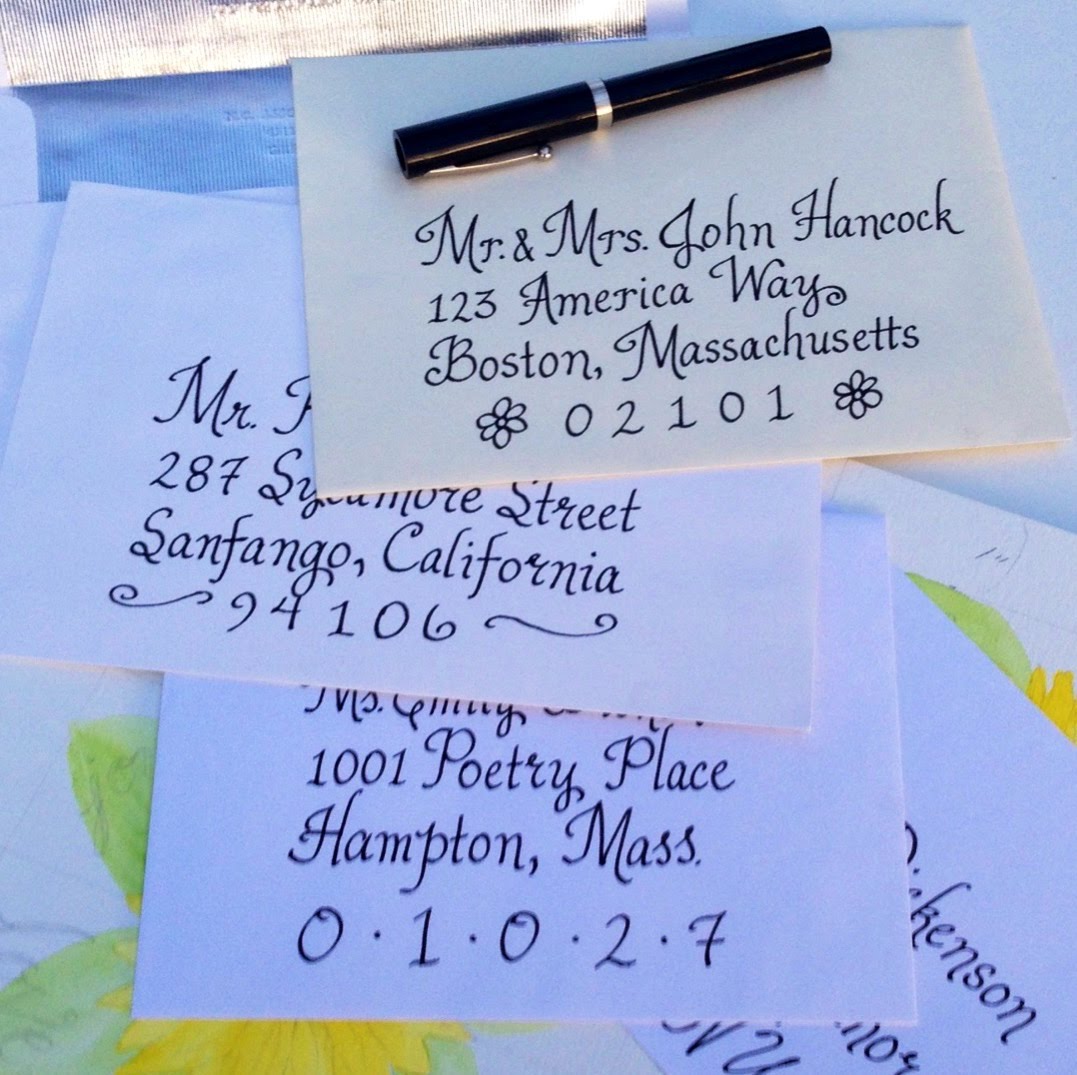 Mr. & Mrs. John Hancock
123 America Way
Boston, Massachusetts
02101
Mr.
287 Sycamore Street
Sanfango, California
94106
Ms. Emily
1001 Poetry Place
Hampton, Mass.
0·1·0·2·7
Dickenson